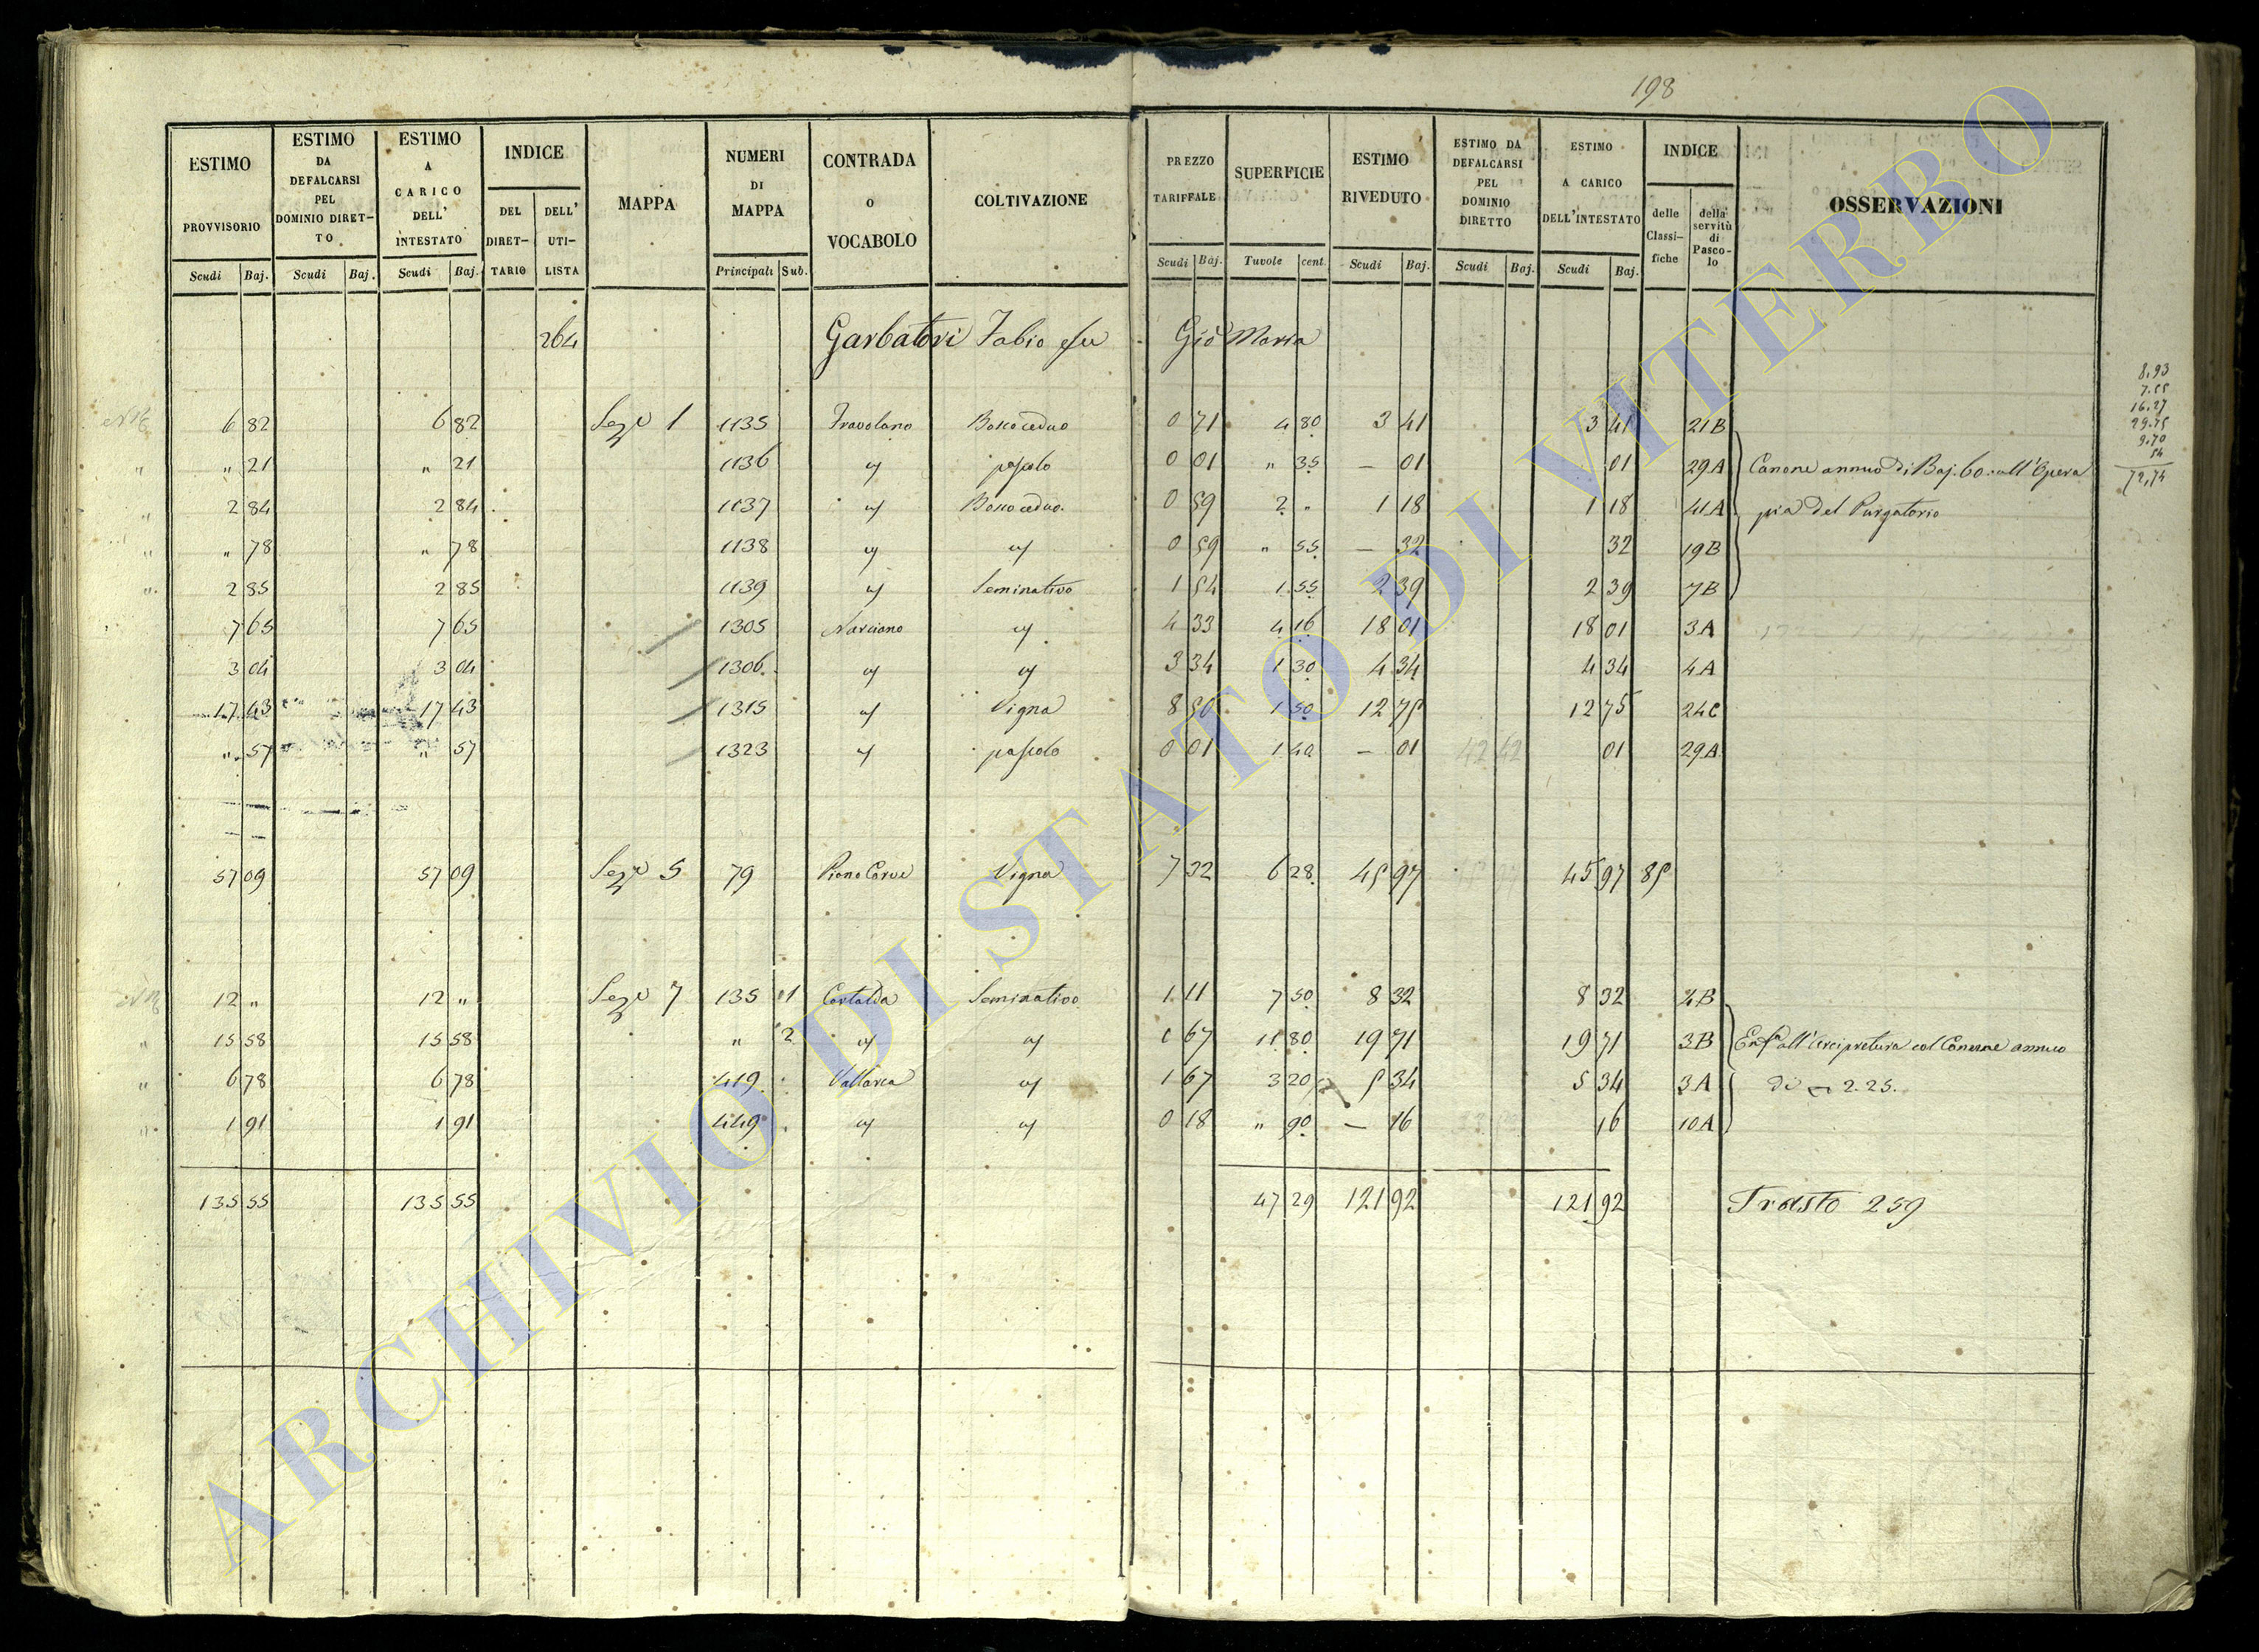 198
ESTIMO PROVVISORIO Scudi Baj.
ESTIMO DA DEFALCARSI PEL DOMINIO DIRETTO Scudi Baj.
ESTIMO A CARICO DELL' INTESTATO Scudi Baj.
INDICE DEL DIRETTARIO DELL' UTILISTA
MAPPA
NUMERI DI MAPPA Principali Sub.
CONTRADA O VOCABOLO
COLTIVAZIONE
PREZZO TARIFFALE Scudi Baj.
SUPERFICIE Tavole cent.
ESTIMO RIVEDUTO Scudi Baj.
ESTIMO DA DEFALCARSI PEL DOMINIO DIRETTO Scudi Baj.
ESTIMO A CARICO DELL'INTESTATO Scudi Baj.
INDICE delle Classifiche della servitù di Pascolo
OSSERVAZIONI
264 Garbatori Fabio fu Gio Maria
6 82 6 82 Sez 1 1135 Bosco ceduo 0 71 4 80 3 41 3 41 21B
" 21 " 21 1136 pascolo 0 01 " 35 — 01 01 29A Canone annuo di Baj. 60 all'Opera
2 84 2 84 1137 Bosco ceduo 0 59 2 " 1 18 1 18 41A pia del Purgatorio
" 78 " 78 1138 0 59 " 55 — 32 32 19B
2 85 2 85 1139 Seminativo 1 54 1 55 2 39 2 39 7B
7 65 7 65 1305 Narciano 4 33 4 16 18 01 18 01 3A
3 04 3 04 1306 3 34 1 30 4 34 4 34 4A
17 43 17 43 1315 Vigna 8 50 1 50 12 75 12 75 24C
" 57 " 57 1323 pascolo 0 01 1 40 — 01 42 42 01 29A
57 09 57 09 Sez 5 79 Vigna 7 32 6 28 45 97 45 97 85
12 " 12 " Sez 7 135 1 Seminativo 1 11 7 50 8 32 8 32 4B
15 58 15 58 " 2 1 67 11 80 19 71 19 71 3B all'Arcipretura col Canone annuo
6 78 6 78 419 1 67 3 20 5 34 5 34 3A di 2.25.
1 91 1 91 449 0 18 " 90 — 16 16 10A
135 55 135 55 47 29 121 92 121 92 Trasto 259
8.93
7.55
16.27
29.75
9.70
54
72,74
ARCHIVIO DI STATO DI VITERBO